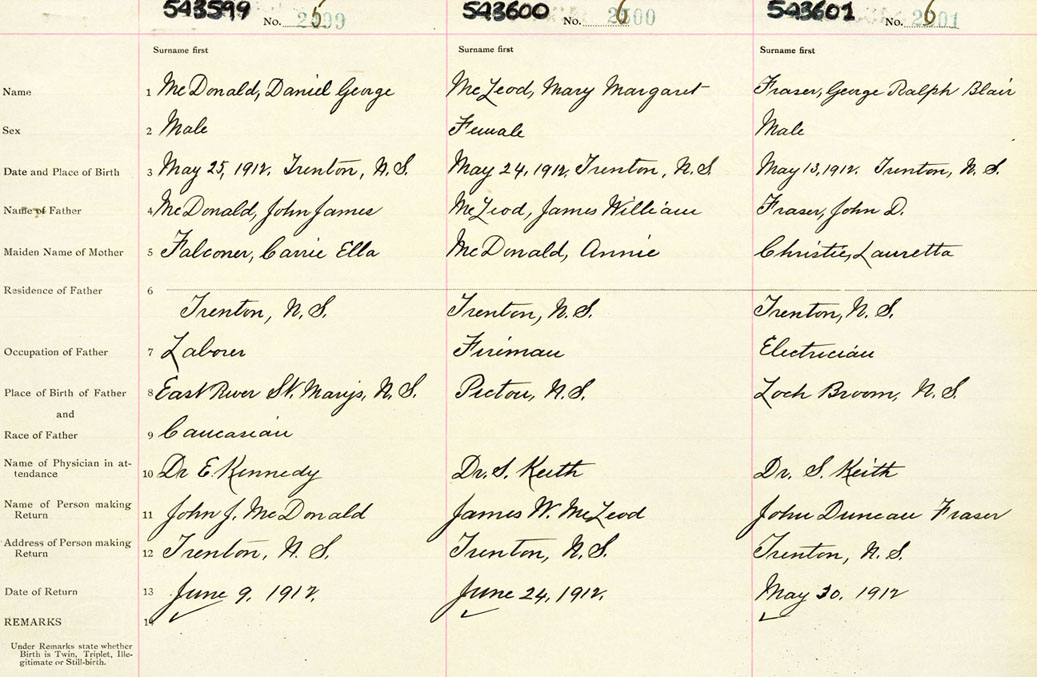 543599 No. 543600 No. 543601 No.
Surname first Surname first Surname first
Name 1 McDonald, Daniel George McLeod, Mary Margaret Fraser, George Ralph Blair
Sex 2 Male Female Male
Date and Place of Birth 3 May 25, 1912. Trenton, N.S. May 24, 1912. Trenton, N.S. May 13, 1912. Trenton, N.S.
Name of Father 4 McDonald, John James McLeod, James William Fraser, John D.
Maiden Name of Mother 5 Falconer, Carrie Ella McDonald, Annie Christie, Lauretta
Residence of Father 6
Trenton, N.S. Trenton, N.S. Trenton, N.S.
Occupation of Father 7 Laborer Fireman Electrician
Place of Birth of Father 8 East River St. Marys, N.S. Pictou, N.S. Loch Broom, N.S.
and
Race of Father 9 Caucasian
Name of Physician in at-
tendance 10 Dr E. Kennedy Dr. S. Keith Dr. S. Keith
Name of Person making
Return 11 John J. McDonald James W. McLeod John Duncan Fraser
Address of Person making
Return 12 Trenton, N.S. Trenton, N.S. Trenton, N.S.
Date of Return 13 June 9, 1912. June 24, 1912. May 30, 1912
REMARKS 14
Under Remarks state whether
Birth is Twin, Triplet, Ille-
gitimate or Still-birth.